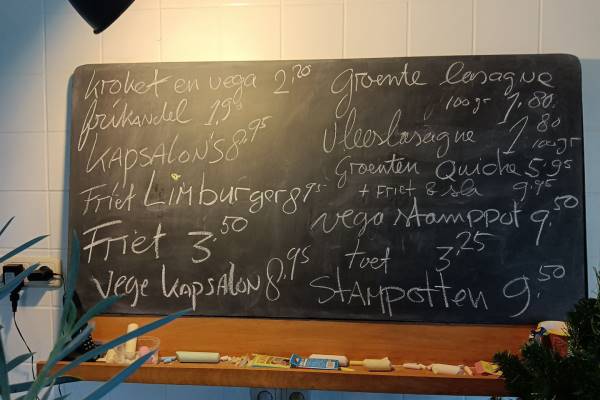 kroket en vega 2,70
frikandel 1,95
KAPSALON'S 8,95
Friet Limburger 8,95
Friet 3,50
Vege kapsalon 8,95
Groente lasagne
100gr 1,80
Vleeslasagne 1,80
100gr
Groenten Quiche 5,95
+ Friet & sla 9,95
vega stamppot 9,50
toet 3,25
STAMPOTTEN 9,50